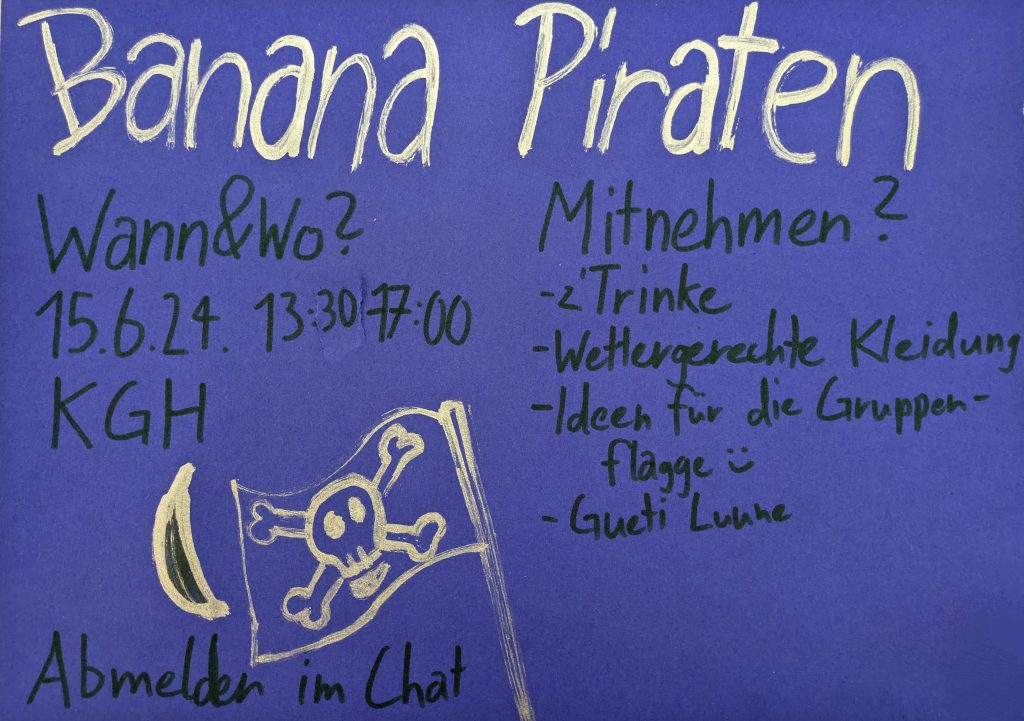 Banana Piraten
Wann&Wo?
15.6.24. 13:30 17:00
KGH
Mitnehmen?
-z'Trinke
-Wettergerechte Kleidung
-Ideen für die Gruppen-
flagge :)
- Gueti Luune
Abmelden im Chat